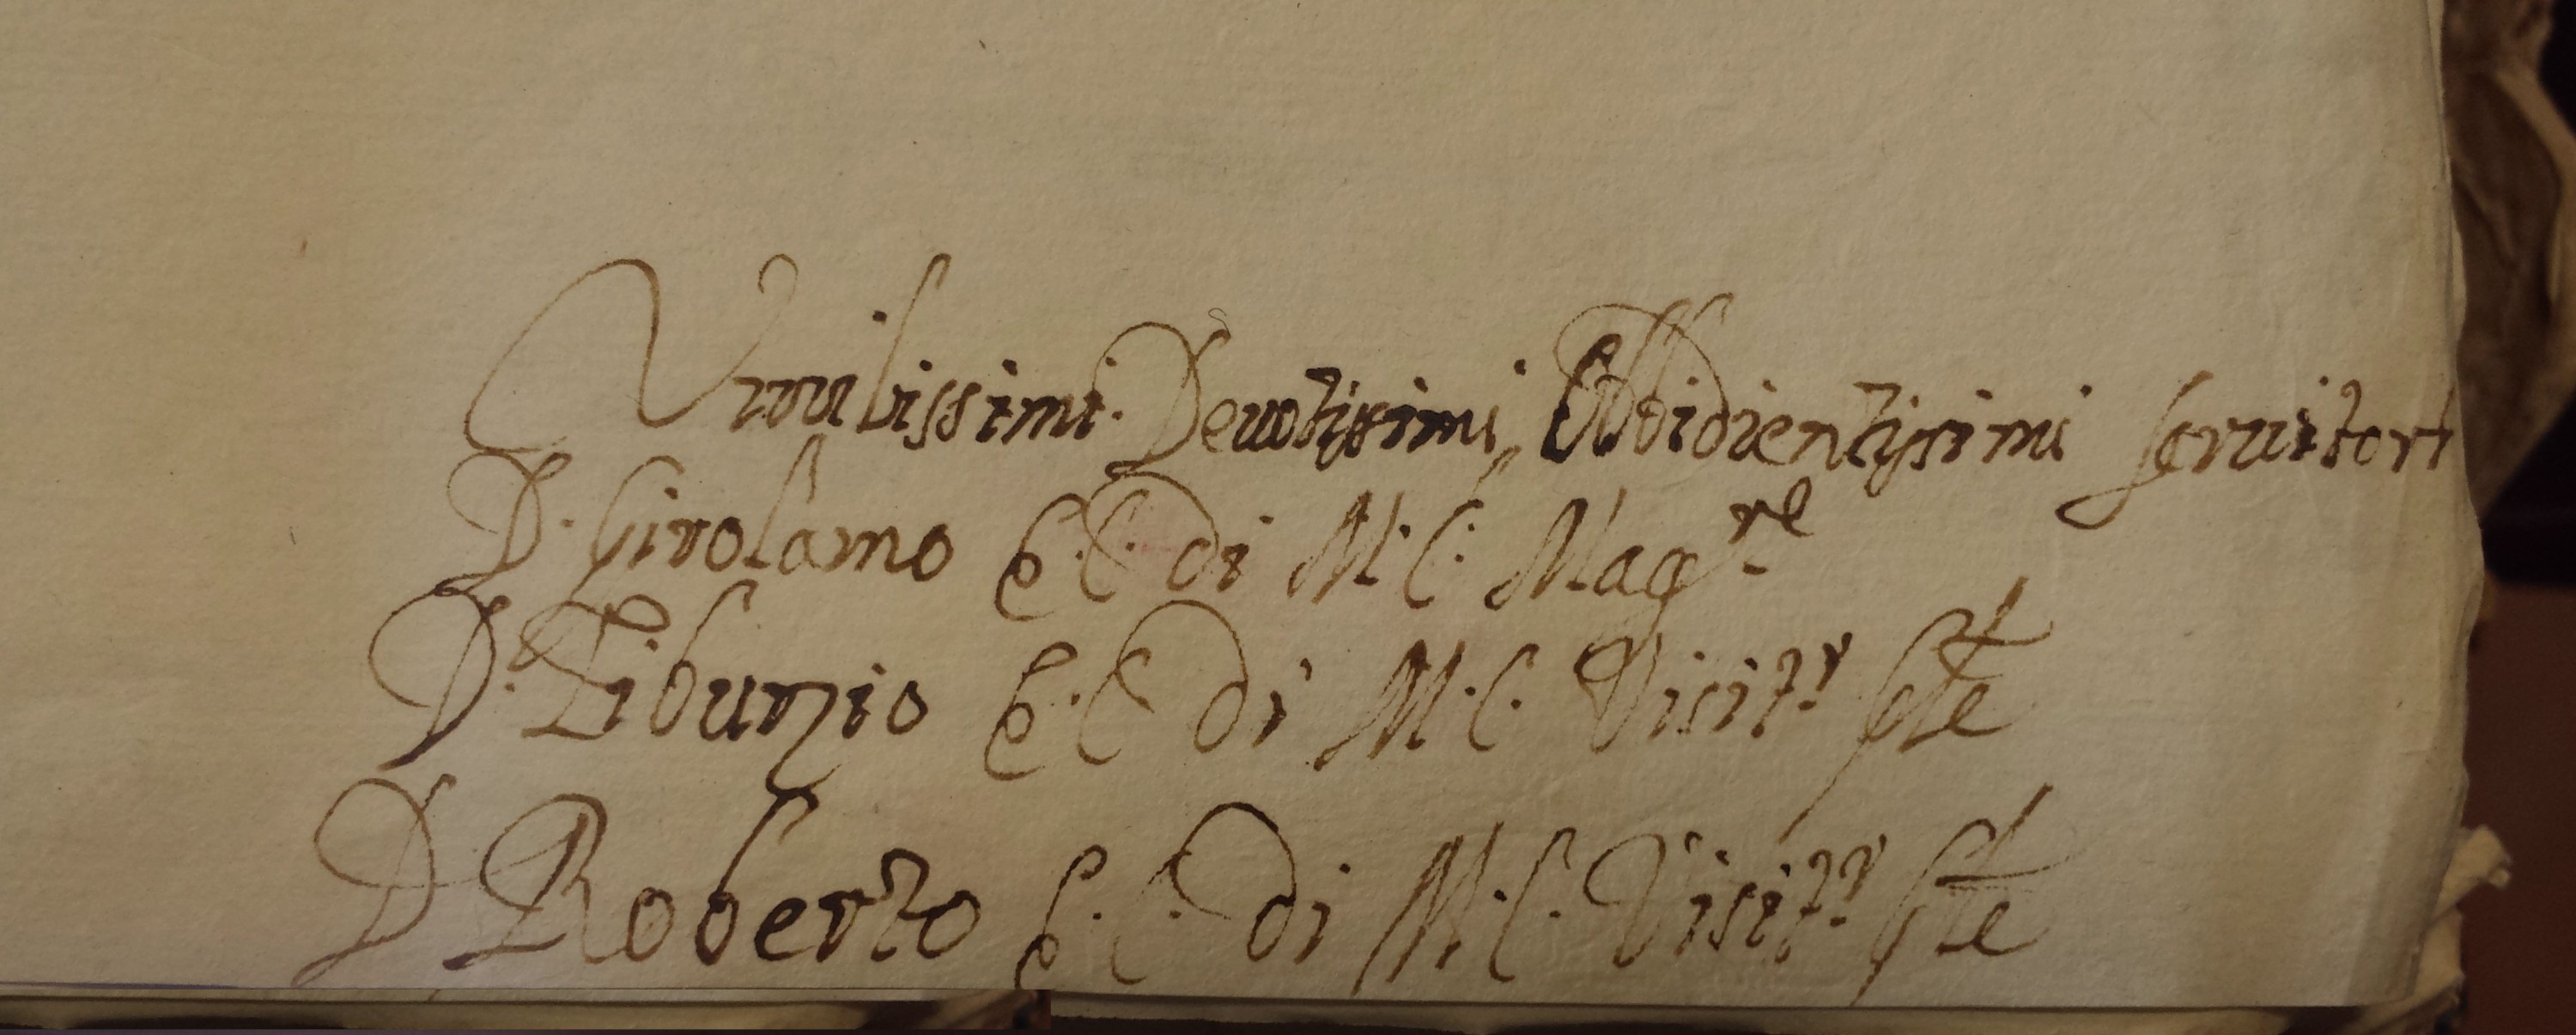 Vmilissimi Deuotissimi Obbidientissimi seruitori
D. Girolamo E. E. di M. C. Mag.re
D. Tiburzio E. E. di M. C. Visit.r
D Roberto E. E. di M. C. Visit.r